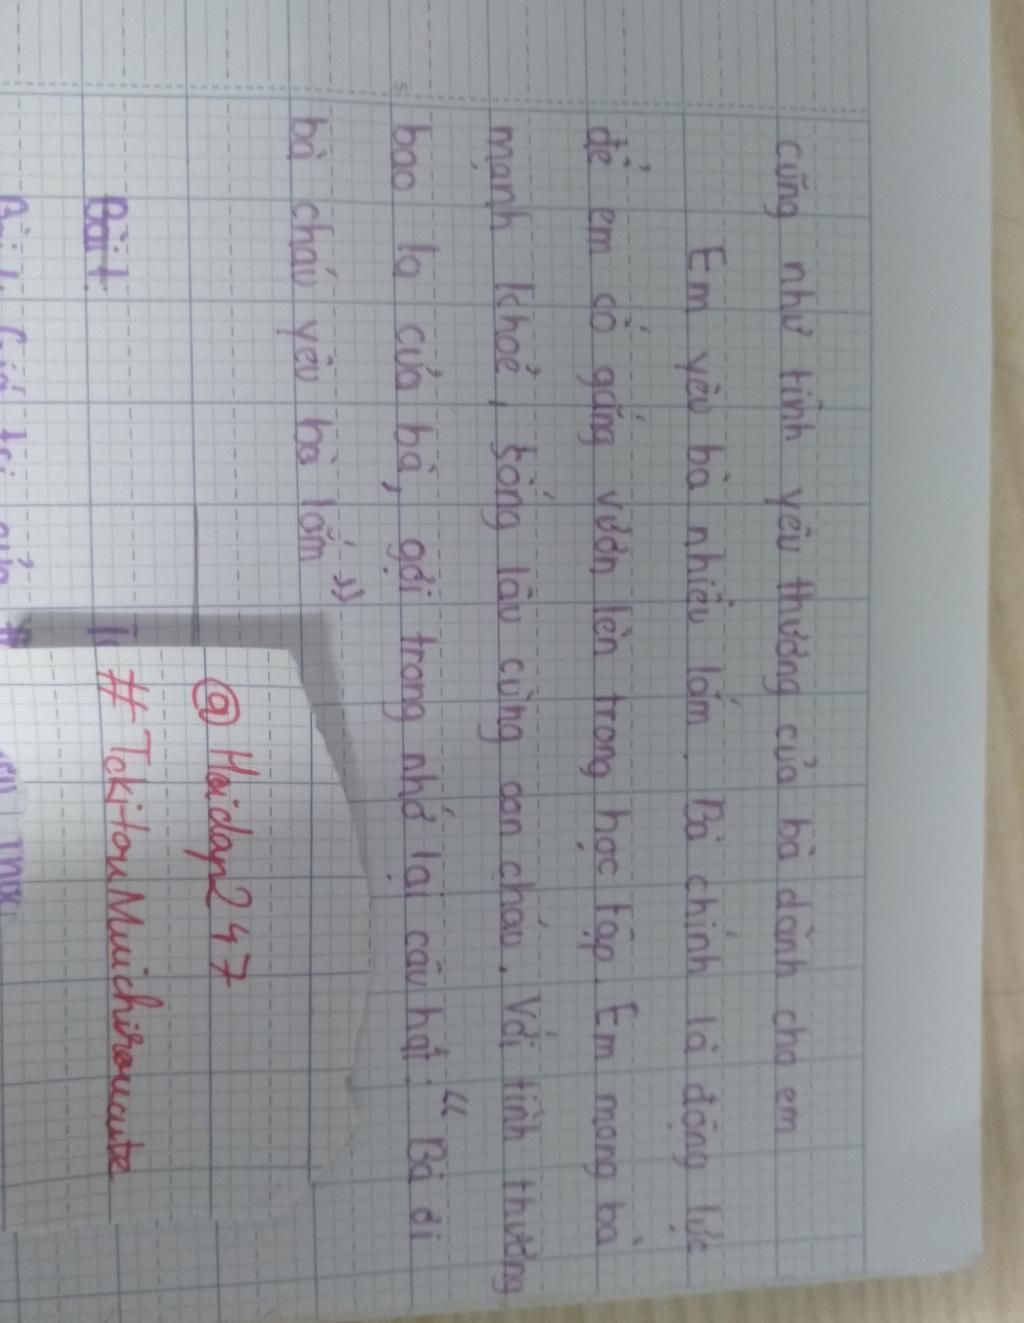 cũng như tình yêu thương của bà dành cho em
Em yêu bà nhiều lắm. Bà chính là động lực
để em cố gắng vươn lên trong học tập. Em mong bà
mạnh khoẻ, sống lâu cùng con cháu. Với tình thương
bao la của bà, gợi trong nhớ lại câu hát: "Bà ơi
bà cháu yêu bà lắm"
@Hoidap247
#TokitouMuichiroucute
Bài 1.